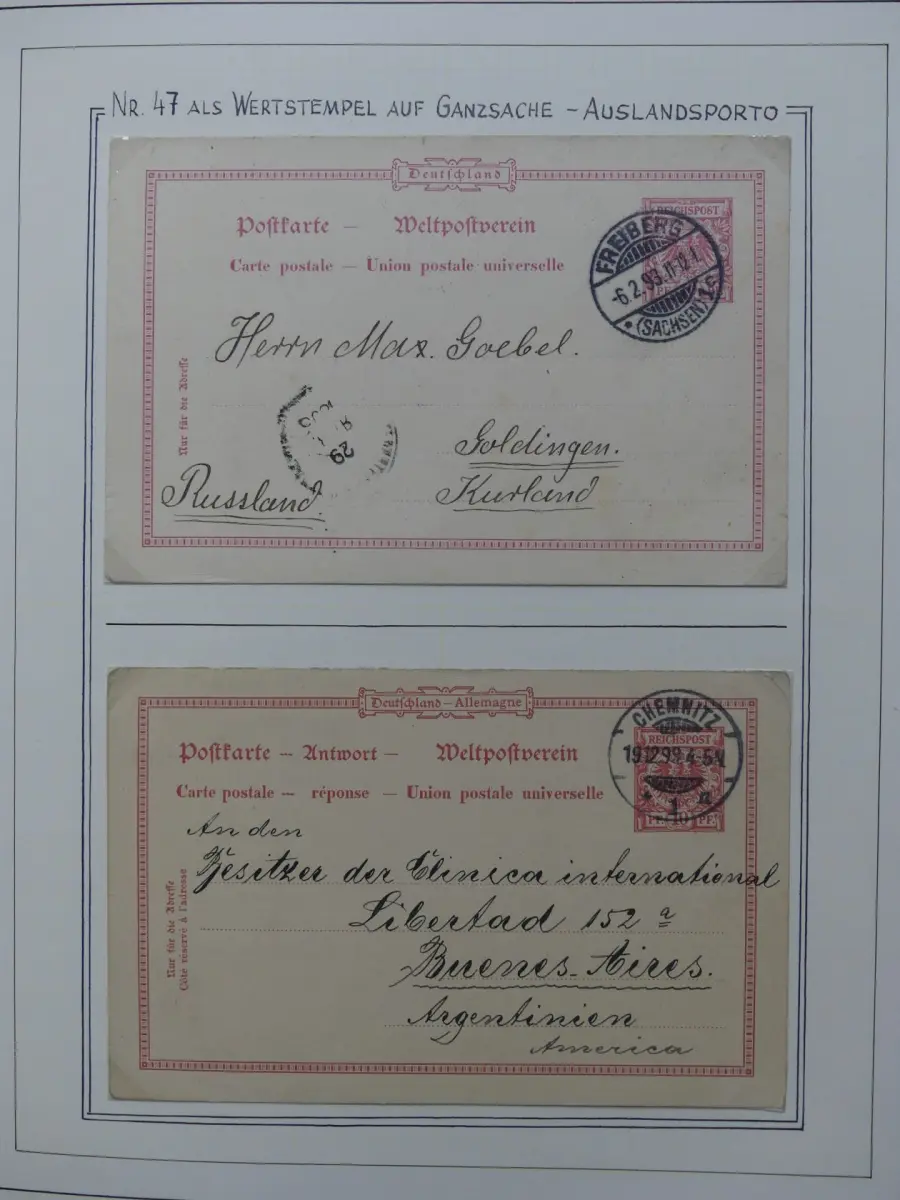 NR. 47 ALS WERTSTEMPEL AUF GANZSACHE – AUSLANDSPORTO
Deutschland
Postkarte — Weltpostverein
Carte postale — Union postale universelle
REICHSPOST
FREIBERG
(SACHSEN)
Herrn Max. Goebel.
Nur für die Adresse
29
Goldingen.
Russland.
Kurland
Deutschland – Allemagne
Postkarte — Antwort — Weltpostverein
Carte postale — réponse — Union postale universelle
CHEMNITZ
REICHSPOST
1
PF. 10 PF.
An den
Besitzer der Clinica international
Libertad 152 a
Buenos-Aires.
Argentinien
America
Nur für die Adresse
Côté réservé à l'adresse